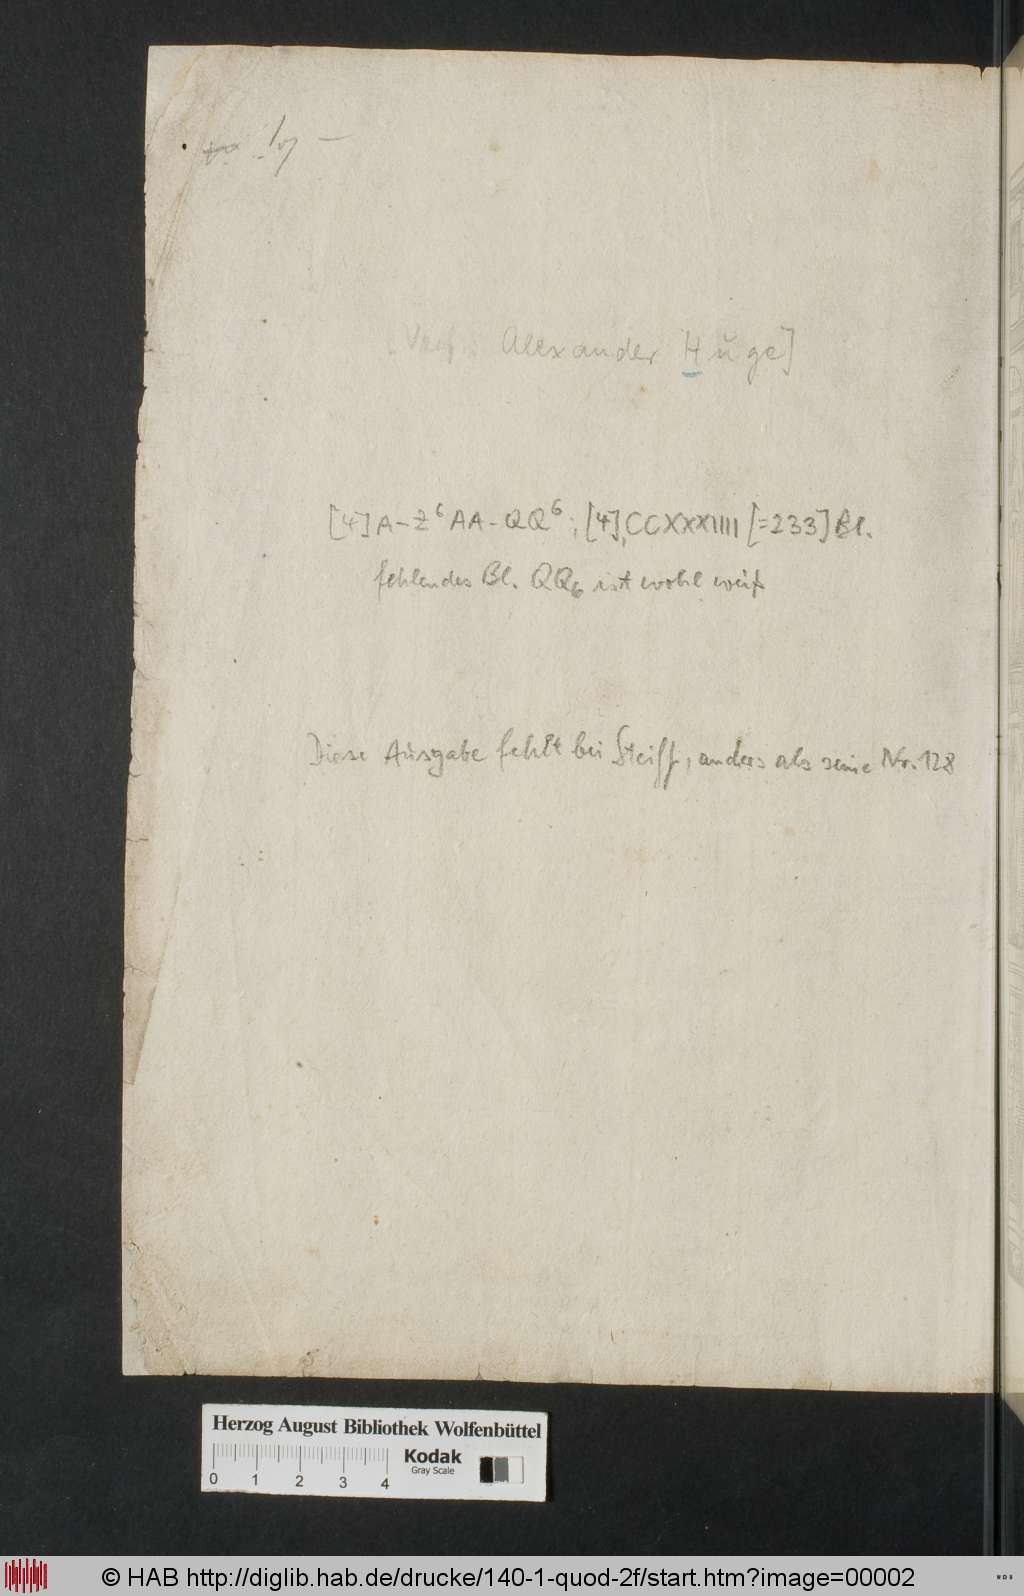 Alexander Huge]
[4] A-Z⁶ AA-QQ⁶; [4], CCXXXIIII [=233] Bl.
fehlendes Bl. QQ₆ ist wohl weiß
Diese Ausgabe fehlt bei Steiff, anders als seine Nr. 128
Herzog August Bibliothek Wolfenbüttel
Kodak
Gray Scale
0 1 2 3 4
© HAB http://diglib.hab.de/drucke/140-1-quod-2f/start.htm?image=00002